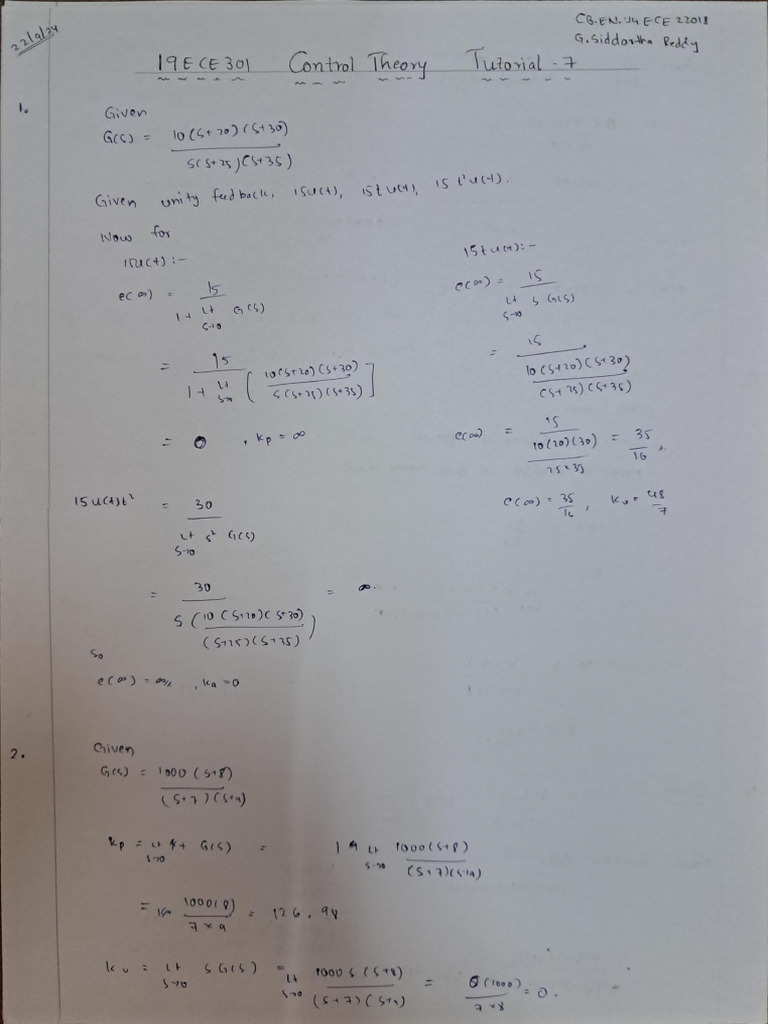 22/9/24
CB.EN.U4ECE22018
G. Siddartha Reddy
19ECE301 Control Theory Tutorial - 7
1.
Given
G(s) = 10(s+20)(s+30) / s(s+25)(s+35)
Given unity feedback, 15u(t), 15tu(t), 15t²u(t).
Now for
15u(t) :-
e(∞) = 15 / 1 + Lt s→0 G(s)
= 15 / 1 + Lt s→0 [ 10(s+20)(s+30) / s(s+25)(s+35) ]
= 0 , kp = ∞
15tu(t) :-
e(∞) = 15 / Lt s→0 s G(s)
= 15 / 10(s+20)(s+30) / (s+25)(s+35)
e(∞) = 15 / 10(20)(30) / 25×35 = 35/16
e(∞) = 35/16 , kv = 48/7
15u(t)t² = 30 / Lt s→0 s² G(s)
= 30 / s ( 10(s+20)(s+30) / (s+25)(s+35) ) = ∞.
So
e(∞) = ∞ , ka = 0
2.
Given
G(s) = 1000(s+8) / (s+7)(s+9)
kp = Lt s→0 G(s) = Lt s→0 1000(s+8) / (s+7)(s+9)
= 1000(8) / 7×9 = 126.98
kv = Lt s→0 s G(s) = Lt s→0 1000s(s+8) / (s+7)(s+9) = 0(1000) / 7×8 = 0.